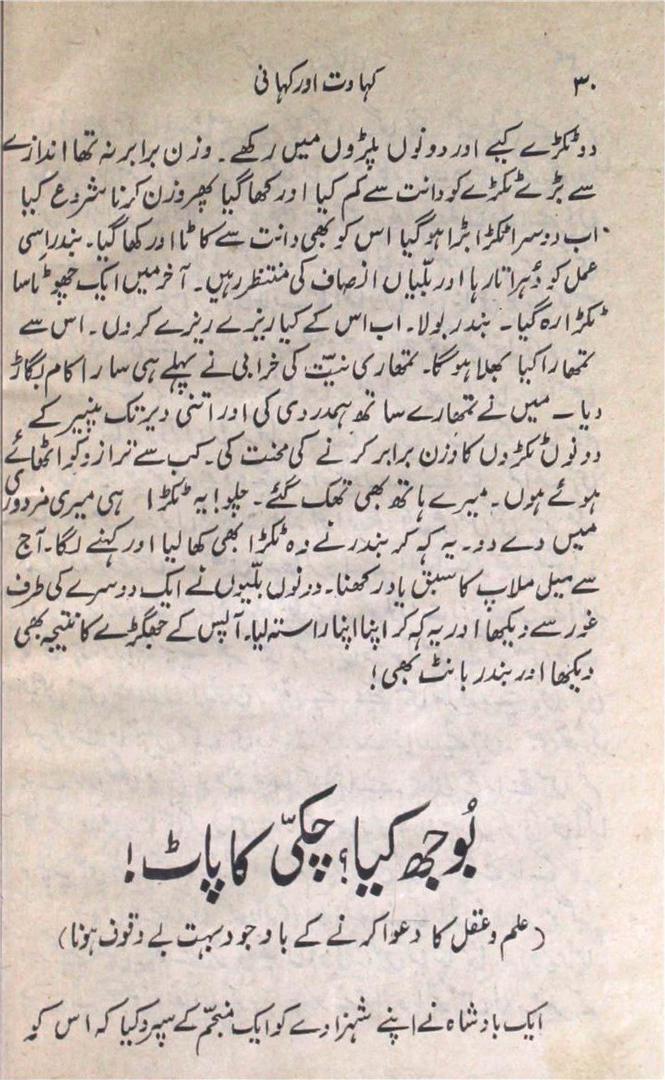 ۳۰
کہاوت اور کہانی
دو ٹکڑے کیے اور دونوں پلڑوں میں رکھے۔ وزن برابر نہ تھا اندازے
سے بڑے ٹکڑے کو دانت سے کم کیا اور کھا گیا پھر وزن کرنا شروع کیا
اب دوسرا ٹکڑا بڑا ہو گیا اس کو بھی دانت سے کاٹا اور کھا گیا۔ بندر اِسی
عمل کو دُہراتا رہا اور بلّیاں انصاف کی منتظر رہیں۔ آخر میں ایک چھوٹا سا
ٹکڑا رہ گیا۔ بندر بولا۔ اب اس کے کیا ریزے ریزے کروں۔ اس سے
تمھارا کیا بھلا ہوگا۔ تمھاری نیّت کی خرابی نے پہلے ہی سارا کام بگاڑ
دیا۔ میں نے تمھارے ساتھ ہمدردی کی اور اتنی دیر تک پنیر کے
دونوں ٹکڑوں کا وزن برابر کرنے کی محنت کی۔ کب سے ترازو کو اٹھائے
ہوئے ہوں۔ میرے ہاتھ بھی تھک گئے۔ چلو! یہ ٹکڑا ہی میری مزدوری
میں دے دو۔ یہ کہہ کر بندر نے وہ ٹکڑا بھی کھا لیا اور کہنے لگا۔ آج
سے میل ملاپ کا سبق یاد رکھنا۔ دونوں بلّیوں نے ایک دوسرے کی طرف
غور سے دیکھا اور یہ کہہ کر اپنا اپنا راستہ لیا۔ آپس کے جھگڑے کا نتیجہ بھی
دیکھا اور بندر بانٹ بھی!
بُوجھ کیا؟ چکّی کا پاٹ!
(علم و عقل کا دعوا کرنے کے باوجود بہت بے وقوف ہونا)
ایک بادشاہ نے اپنے شہزادے کو ایک منجّم کے سپرد کیا کہ اس کو